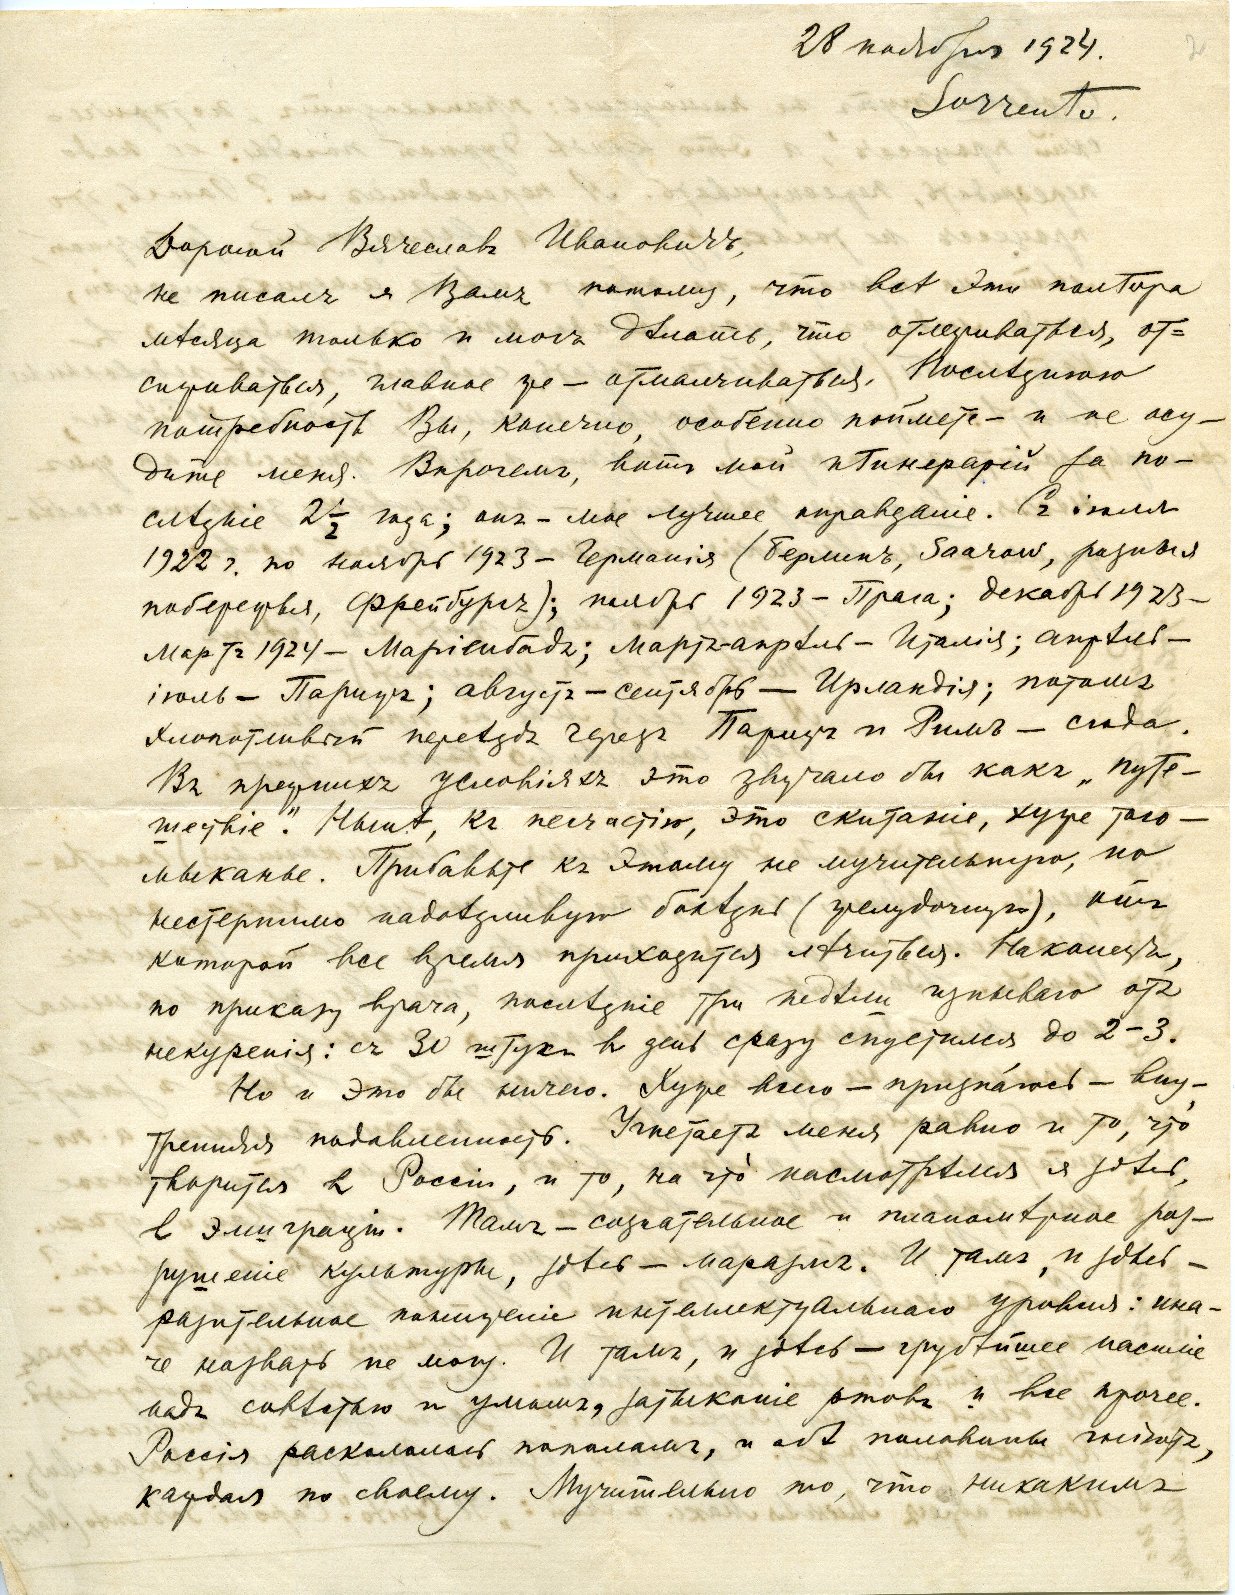 28 ноября 1924.
Sorrento.
Дорогой Вячеславъ Ивановичъ,
не писалъ я Вамъ потому, что всѣ эти полтора
мѣсяца только и могъ дѣлать, что отлеживаться, от=
сиживаться, главное же — отмалчиваться. Последнюю
потребность Вы, конечно, особенно поймете — и не осу-
дите меня. Впрочемъ, вотъ мой итинерарій за по-
слѣдніе 2½ года; онъ — мое лучшее оправданіе. Съ іюля
1922 г. по ноябрь 1923 — Германія (Берлинъ, Saarow, разныя
побережья, Фрейбургъ); ноябрь 1923 — Прага; декабрь 1923 —
Мартъ 1924 — Маріенбадъ; Мартъ-апрѣль — Италія; апрѣль —
іюль — Парижъ; августъ — сентябрь — Ирландія; потомъ
хлопотливый переѣздъ черезъ Парижъ и Римъ — сюда.
Въ прежнихъ условіяхъ это звучало бы какъ „путе-
шествіе“. Нынѣ, къ несчастію, это скитаніе, хуже того —
мыканье. Прибавьте къ этому не мучительную, но
нестерпимо надоѣдливую болѣзнь (желудочную), отъ
которой все время приходится лѣчиться. Наконецъ,
по приказу врача, послѣдніе три недѣли изнываю отъ
некуренія: съ 30 штукъ въ день сразу спустился до 2–3.
Но и это бы ничего. Хуже всего — признáюсь — вну-
тренняя подавленность. Угнетаетъ меня равно и то, что́
творится въ Россіи, и то, на что́ насмотрѣлся я здѣсь,
въ эмиграціи. Тамъ — сознательное и планомѣрное раз-
рушеніе культуры, здѣсь — маразмъ. И тамъ, и здѣсь —
разительное пониженіе интеллектуальнаго уровня: ина-
че назвать не могу. И тамъ, и здѣсь — грубѣйшее насиліе
надъ совѣстью и умомъ, затыканіе ртовъ и все прочее.
Россія раскололась пополамъ, и обѣ половины гніютъ,
каждая по своему. Мучительно то, что никакимъ